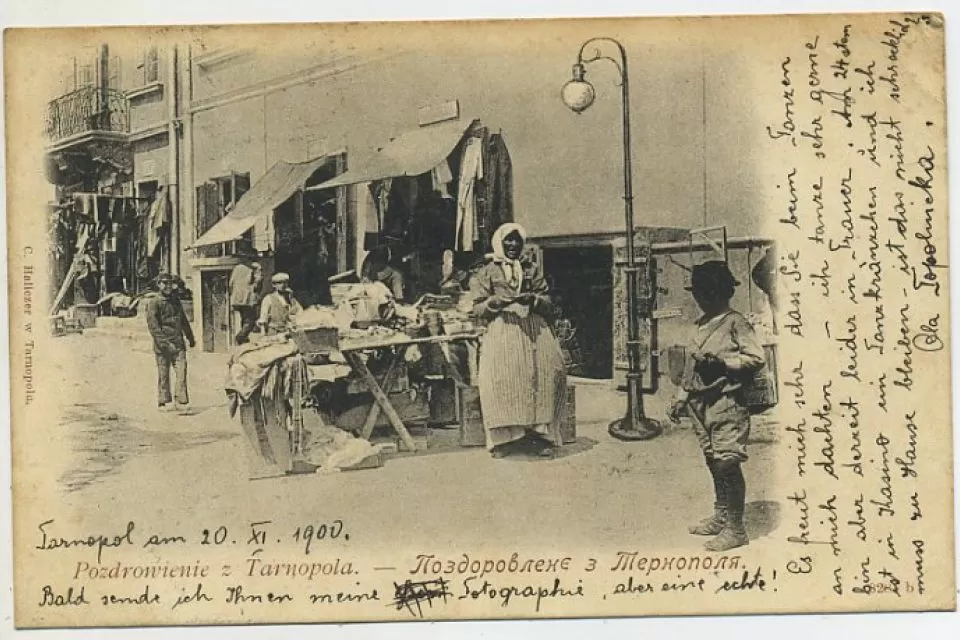 C. Hallezer w Tarnopolu.
Tarnopol am 20. XI. 1900.
Pozdrowienie z Tarnopola. — Поздоровленє з Тернополя.
Bald sende ich Ihnen meine Fotographie, aber eine echte!
Es freut mich sehr dass Sie beim Tanzen
an mich dachten – ich tanze sehr gerne
bin aber derzeit leider in Trauer. Am 24sten
ist in Kasino ein Tanzkränzchen und ich
muss zu Hause bleiben – ist das nicht schrecklich?
Ola Topolnicka.